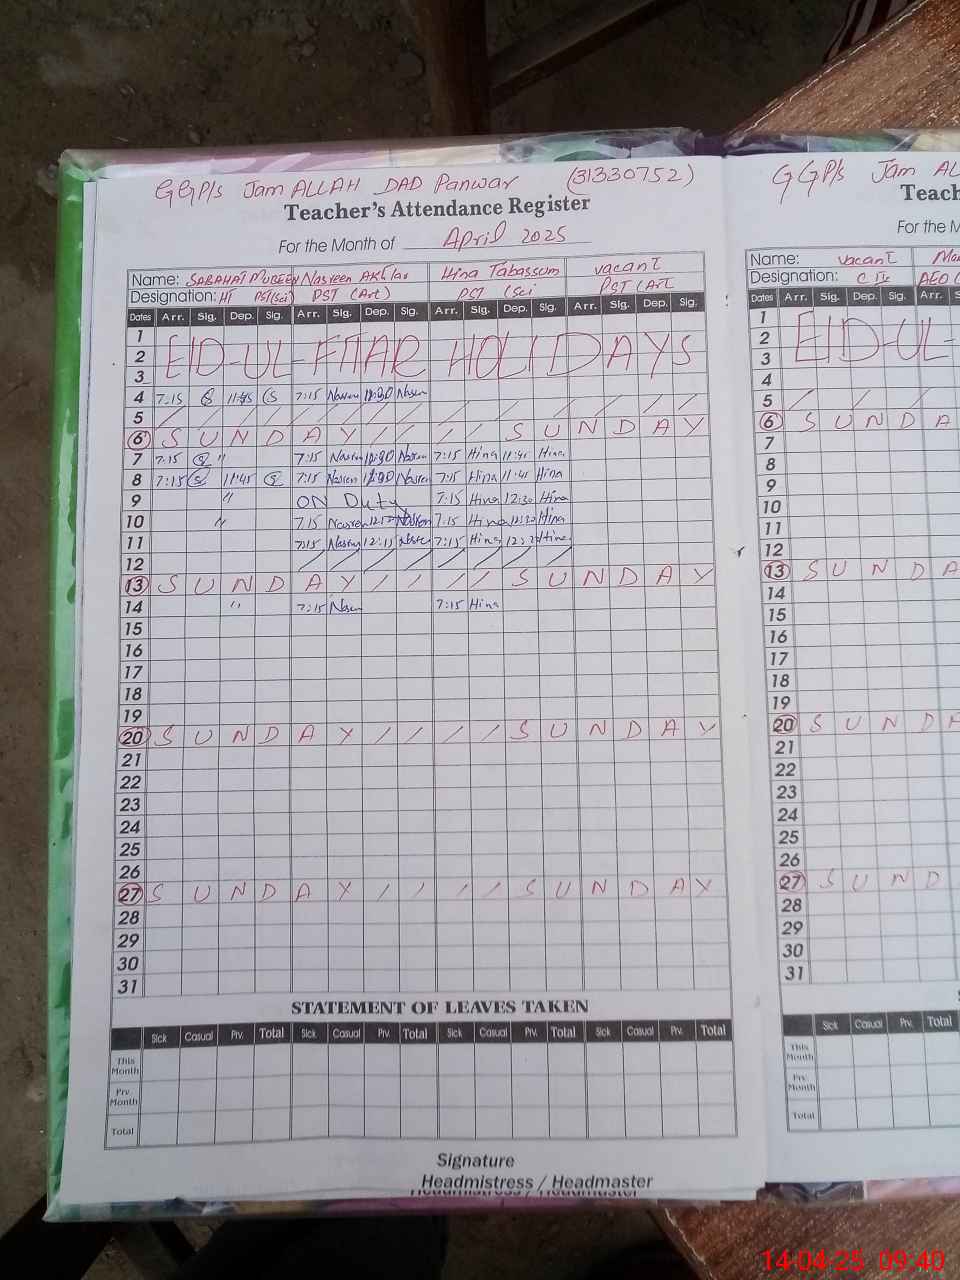 GGP/s Jam ALLAH DAD Panwar (31330752)
Teacher's Attendance Register
For the Month of April 2025
Name: SABAHAT MUBEEN Nasreen Akhtar Hina Tabassum vacant
Designation: HT PST(Sci) PST (Art) PST (Sci PST (Art
Dates Arr. Sig. Dep. Sig. Arr. Sig. Dep. Sig. Arr. Sig. Dep. Sig. Arr. Sig. Dep. Sig.
1
2 EID-UL-FITAR HOLIDAYS
3
4 7:15 11:45 7:15 Nasren 12:30 Nasren
5 / / / / / / / / / / / / / / / /
6 S U N D A Y / / / / S U N D A Y
7 7:15 " 7:15 Nasren 12:30 Nasren 7:15 Hina 11:45 Hina
8 7:15 11:45 7:15 Nasren 12:30 Nasren 7:15 Hina 11:45 Hina
9 " ON Duty 7:15 Hina 12:30 Hina
10 " 7:15 Nasren Nasren 7:15 Hina 12:30 Hina
11 7:15 Nasren 12:15 7:15 Hina Hina
12 / / / / / / / /
13 S U N D A Y / / / / S U N D A Y
14 " 7:15 7:15 Hina
15
16
17
18
19
20 S U N D A Y / / / / S U N D A Y
21
22
23
24
25
26
27 S U N D A Y / / / / S U N D A Y
28
29
30
31
STATEMENT OF LEAVES TAKEN
Sick Casual Prv. Total Sick Casual Prv. Total Sick Casual Prv. Total Sick Casual Prv. Total
This Month
Prv. Month
Total
Signature
Headmistress / Headmaster
Headmistress / Headmaster
GGP/s Jam AL
Teach
For the M
Name: vacant
Designation: C IV AEO
Dates Arr. Sig. Dep. Sig. Arr.
1
2 EID-UL-
3
4
5 / / /
6 S U N D A
7
8
9
10
11
12
13 S U N D A
14
15
16
17
18
19
20 S U N D A
21
22
23
24
25
26
27 S U N D
28
29
30
31
Sick Casual Prv. Total
This Month
Prv. Month
Total
14-04-25 09:40